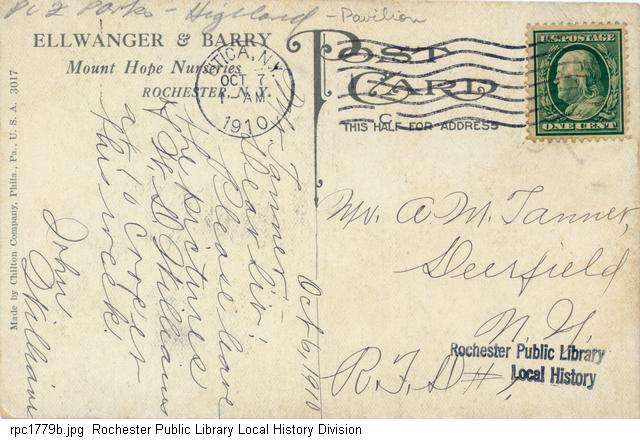 Pc 2 Parks - Highland - Pavilion
ELLWANGER & BARRY
Mount Hope Nurseries
ROCHESTER, N. Y.
UTICA, N.Y.
OCT 7
1 AM
1910
POST
CARD
THIS HALF FOR ADDRESS
U.S. POSTAGE
ONE CENT
Made by Chilton Company, Phila., Pa., U. S. A. 3017
Oct 6, 1910
Mr. Tanner
Dear Sir:
Please leave
the pictures
at
at 10
this week.
John
William
Mr. A. M. Tanner,
Deerfield
N. Y.
R.F.D #1,
Rochester Public Library
Local History
rpc1779b.jpg Rochester Public Library Local History Division